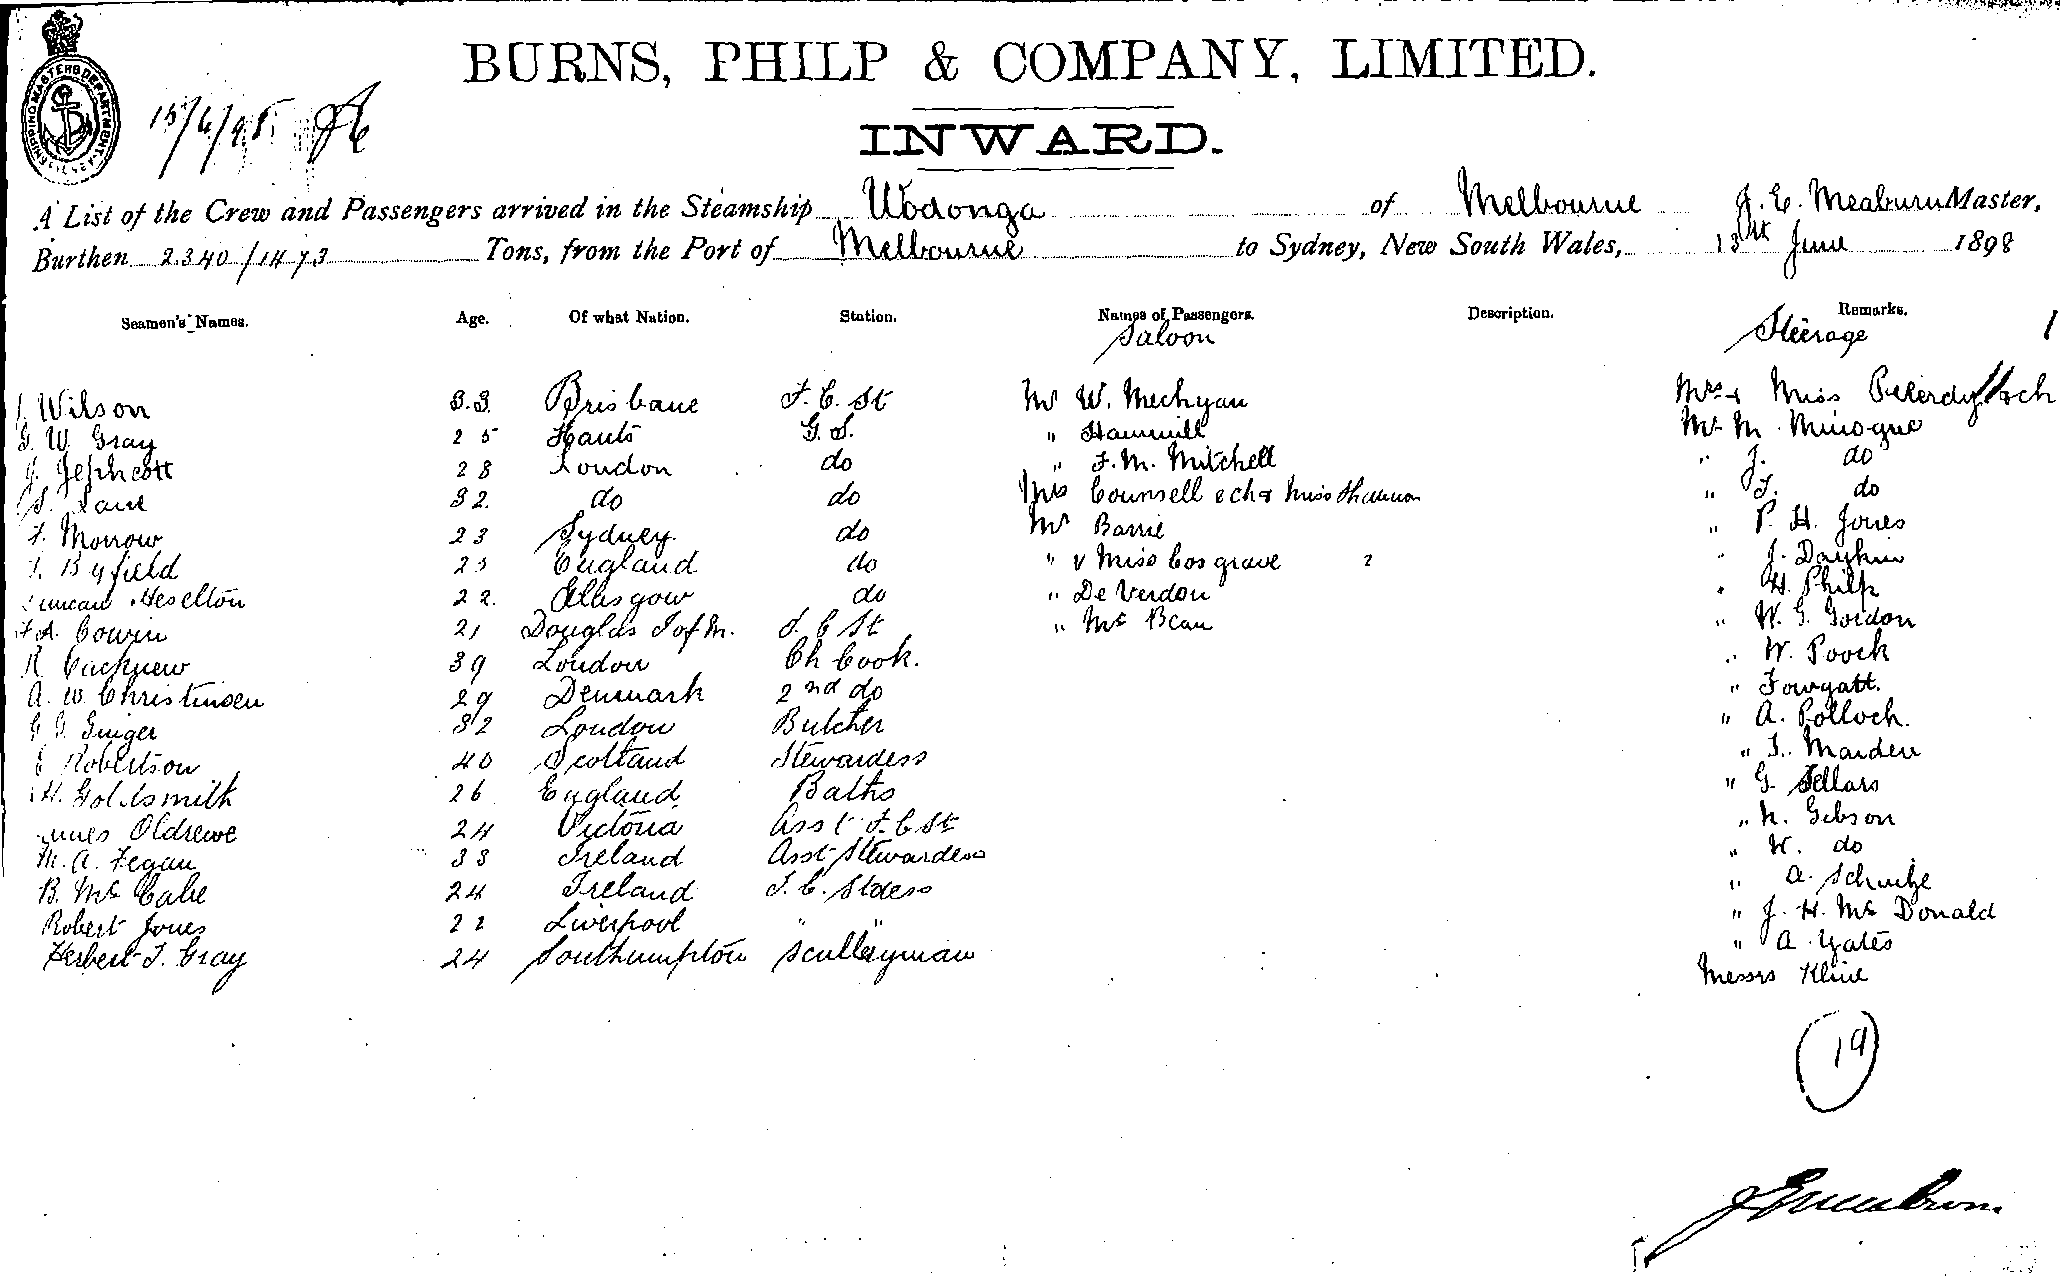 BURNS, PHILP & COMPANY, LIMITED.
INWARD.
SHIPPING MASTERS DEPARTMENT
A List of the Crew and Passengers arrived in the Steamship Wodonga of Melbourne J. E. Meaburn Master,
Burthen 2340/1473 Tons, from the Port of Melbourne to Sydney, New South Wales, 13 June 1898
Seamen's Names. Age. Of what Nation. Station. Names of Passengers. Description. Remarks.
Saloon Steerage 1
J. Wilson 33 Brisbane F. C. St Mr W. Mechyan Mrs & Miss
G. W. Gray 25 Hants G. S. " Hammill Mr M. Minogue
J. Jephcott 28 London do " F. M. Mitchell " J. do
S. Lane 32. do do Mrs Counsell & Miss " T. do
F. Morrow 23 Sydney do Mr Barrie " P. H. Jones
T. Byfield 25 England do " & Miss Cosgrave 2 " J. Daykin
Duncan Heselton 22. Glasgow do " De Verdon " H. Philp
Cowin 21 Douglas I of M. F. C St " Mc Bean " W. G. Gordon
R 39 London Ch Cook. " W. Poock
A. W. Christinsen 29 Denmark 2nd do " Fowgatt.
G Ginger 32 London Butcher " A. Polloch.
E Robertson 40 Scotland Stewardess " T. Marden
H. Goldsmith 26 England Baths " G. Sellars
James Oldrewe 24 Victoria Asst F. C St " N. Gibson
M. A. Fegan 33 Ireland Asst Stewardess " W. do
B. Mc Cabe 24 Ireland F. C. Stdess " A. Schultze
Robert Jones 22 Liverpool " " " J. H. Mc Donald
Herbert J. Gray 24 Southumpton Sculleryman " A. Yates
Messrs Kline
19